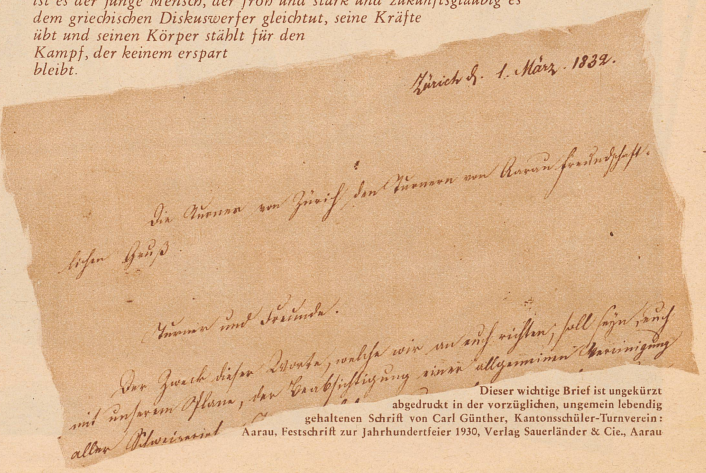 ist es der junge Mensch, der froh und stark und zukunftsgläubig es
dem griechischen Diskuswerfer gleichtut, seine Kräfte
übt und seinen Körper stählt für den
Kampf, der keinem erspart
bleibt.
Zürich d. 1. März. 1832.
Die Turner von Zürich, den Turnern von Aarau freundschaft-
lichen Gruß
Turner und Freunde.
Der Zweck dieser Worte, welche wir an euch richten, soll seyn, euch
mit unserem Plane, der Beabsichtigung einer allgemeinen Vereinigung
aller
Dieser wichtige Brief ist ungekürzt
abgedruckt in der vorzüglichen, ungemein lebendig
gehaltenen Schrift von Carl Günther, Kantonsschüler-Turnverein:
Aarau, Festschrift zur Jahrhundertfeier 1930, Verlag Sauerländer & Cie., Aarau